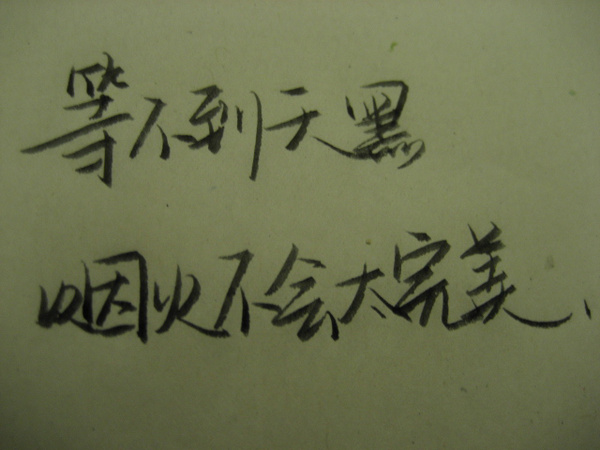 等不到天黑
咽火不会太完美、